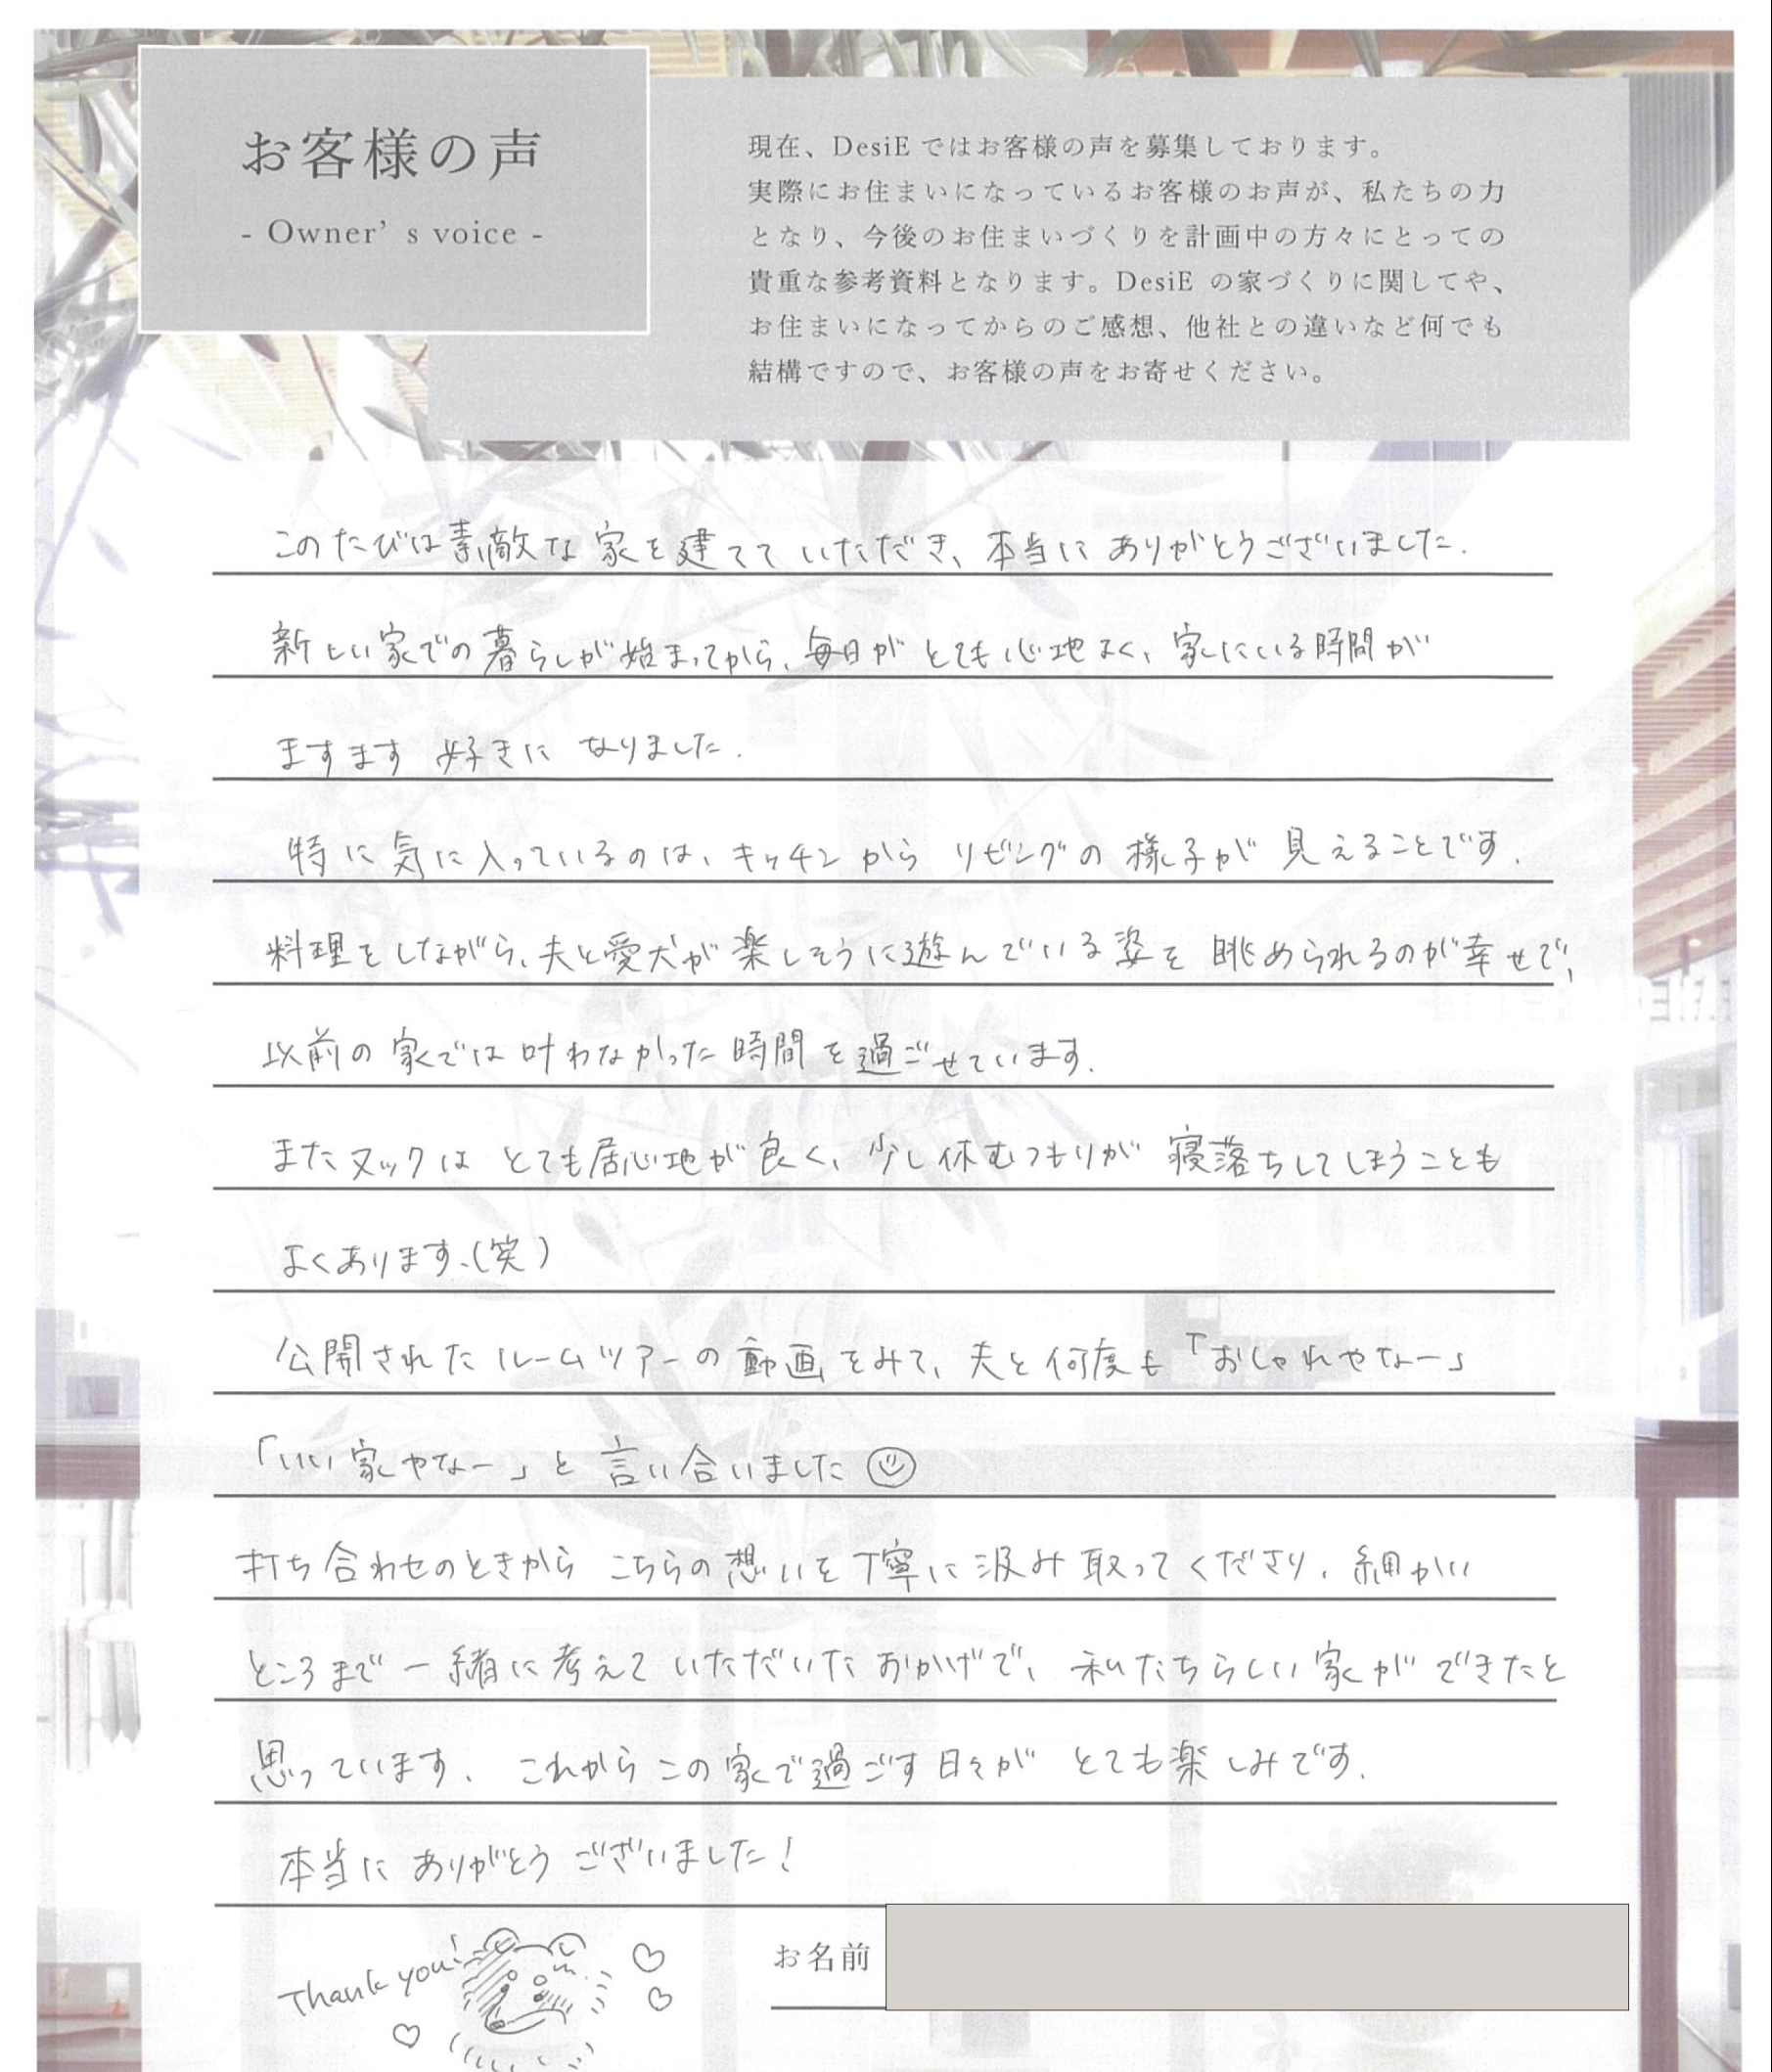 お客様の声
- Owner’ s voice -
現在、DesiE ではお客様の声を募集しております。
実際にお住まいになっているお客様のお声が、私たちの力
となり、今後のお住まいづくりを計画中の方々にとっての
貴重な参考資料となります。DesiE の家づくりに関してや、
お住まいになってからのご感想、他社との違いなど何でも
結構ですので、お客様の声をお寄せください。
このたびは素敵な家を建てていただき、本当にありがとうございました.
新しい家での暮らしが始まってから、毎日がとても心地よく、家にいる時間が
ますます好きになりました.
特に気に入っているのは、キッチンからリビングの様子が見えることです.
料理をしながら、夫と愛犬が楽しそうに遊んでいる姿を眺められるのが幸せで、
以前の家では叶わなかった時間を過ごせています.
またヌックはとても居心地が良く、少し休むつもりが寝落ちしてしまうことも
よくあります、(笑)
公開されたルームツアーの動画をみて、夫と何度も「おしゃれやなー」
「いい家やなー」と言い合いました
打ち合わせのときからこちらの想いを丁寧に汲み取ってくださり、細かい
ところまで一緒に考えていただいたおかげで、私たちらしい家ができたと
思っています. これからこの家で過ごす日々がとても楽しみです.
本当にありがとうございました!
Thank you!
お名前